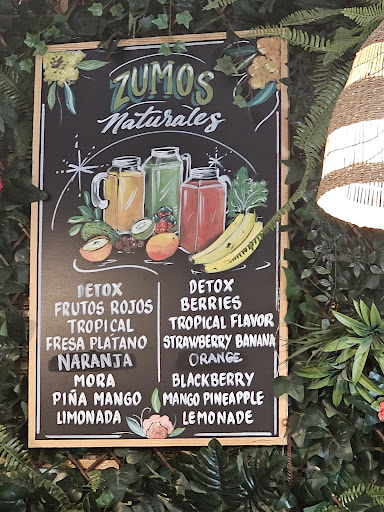 ZUMOS
Naturales
DETOX
FRUTOS ROJOS
TROPICAL
FRESA PLATANO
NARANJA
MORA
PIÑA MANGO
LIMONADA
DETOX
BERRIES
TROPICAL FLAVOR
STRAWBERRY BANANA
ORANGE
BLACKBERRY
MANGO PINEAPPLE
LEMONADE